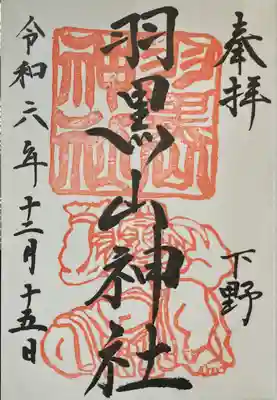 奉拝
下野
羽黒山神社
令和六年十二月十五日
羽黒山神社